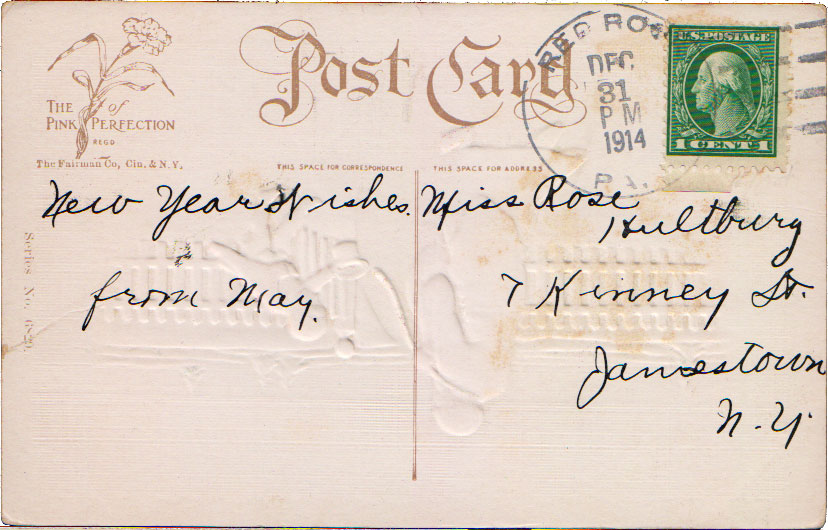 Post Card
THE of
PINK PERFECTION
REGD
The Fairman Co, Cin. & N.Y.
THIS SPACE FOR CORRESPONDENCE
THIS SPACE FOR ADDRESS
RED ROW
DEC
31
PM
1914
PA.
U.S. POSTAGE
1 CENT 1
New Year Wishes.
from May.
Miss Rose
Hultburg
7 Kinney St.
Jamestown
N.Y.
Series No.